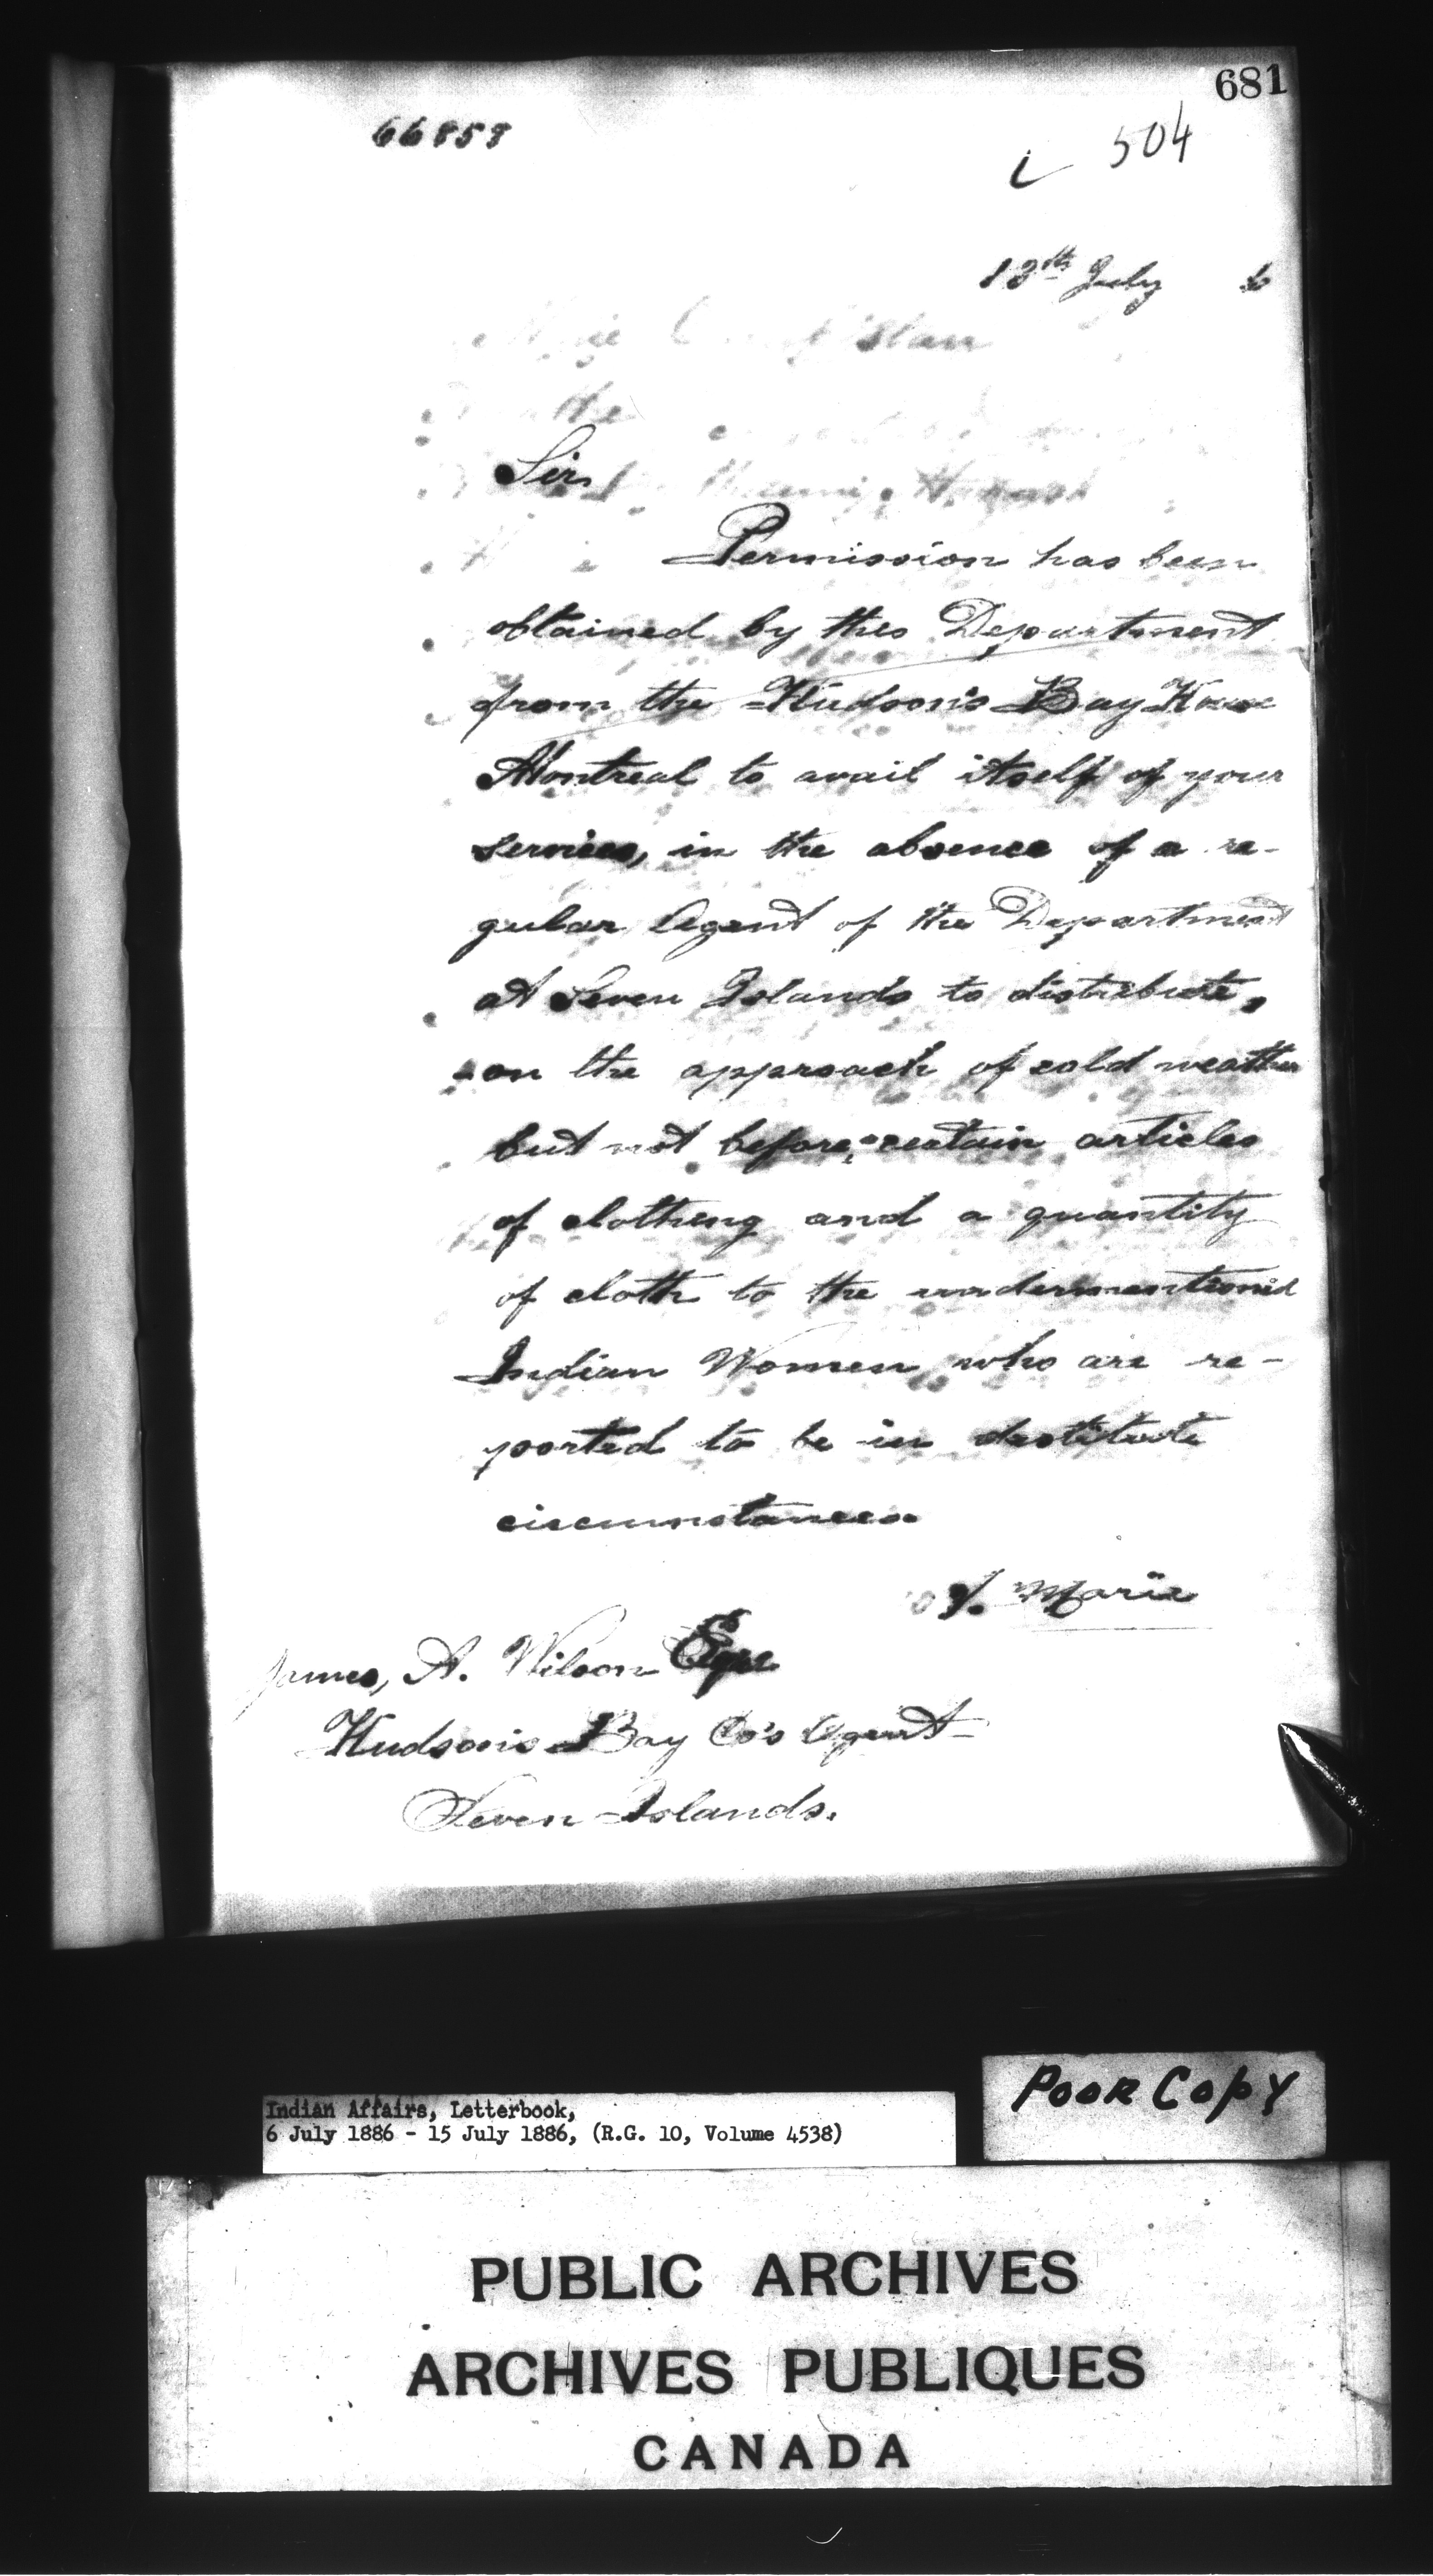 681
66858
L 504
13th July 6
Sir
Permission has been
obtained by this Department
from the Hudson's Bay House
Montreal to avail itself of your
services, in the absence of a re-
gular Agent of the Department
at Seven Islands to distribute,
on the approach of cold weather
but not before, certain articles
of clothing and a quantity
of cloth to the undermentioned
Indian Women who are re-
ported to be in destitute
circumstances.
Marie
James, A. Wilson Esqre
Hudson's Bay Co's Agent
Seven Islands.
Poor Copy
Indian Affairs, Letterbook,
6 July 1886 - 15 July 1886, (R.G. 10, Volume 4538)
PUBLIC ARCHIVES
ARCHIVES PUBLIQUES
CANADA